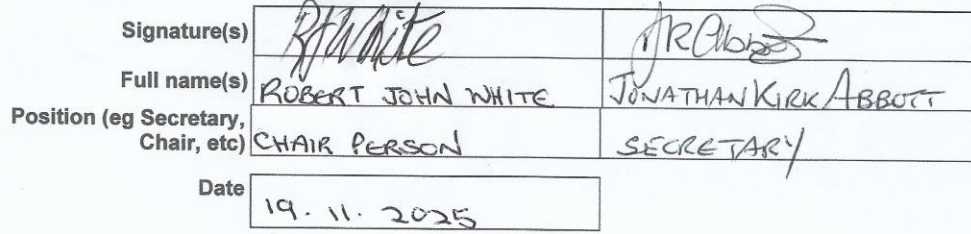 Signature(s) RJWhite JKAbbott
Full name(s) ROBERT JOHN WHITE JONATHAN KIRK ABBOTT
Position (eg Secretary,
Chair, etc) CHAIR PERSON SECRETARY
Date 19. 11. 2025